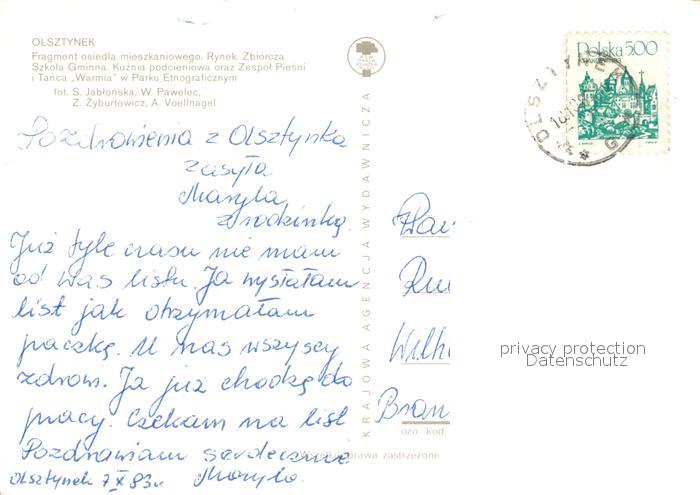 OLSZTYNEK
Fragment osiedla mieszkaniowego. Rynek. Zbiorcza
Szkoła Gminna. Kuźnia podcieniowa oraz Zespół Pieśni
i Tańca „Warmia" w Parku Etnograficznym
fot. S. Jabłońska, W. Pawelec,
Z. Żyburtowicz, A. Voellnagel
Pozdrowienia z Olsztynka
zasyła
Maryla
z rodzinką.
Już tyle czasu nie mam
od Was listu. Ja wysłałam
list jak otrzymałam
paczkę. U nas wszyscy
zdrowi. Ja już chodzę do
pracy. Czekam na list
Pozdrawiam serdecznie
Olsztynek 7 X 83r Maryla.
KRAJOWA AGENCJA WYDAWNICZA
Polska 5.00
OLSZTYNEK
Wilh
Bran
ozn. kod.
Wszelkie prawa zastrzeżone
privacy protection
Datenschutz